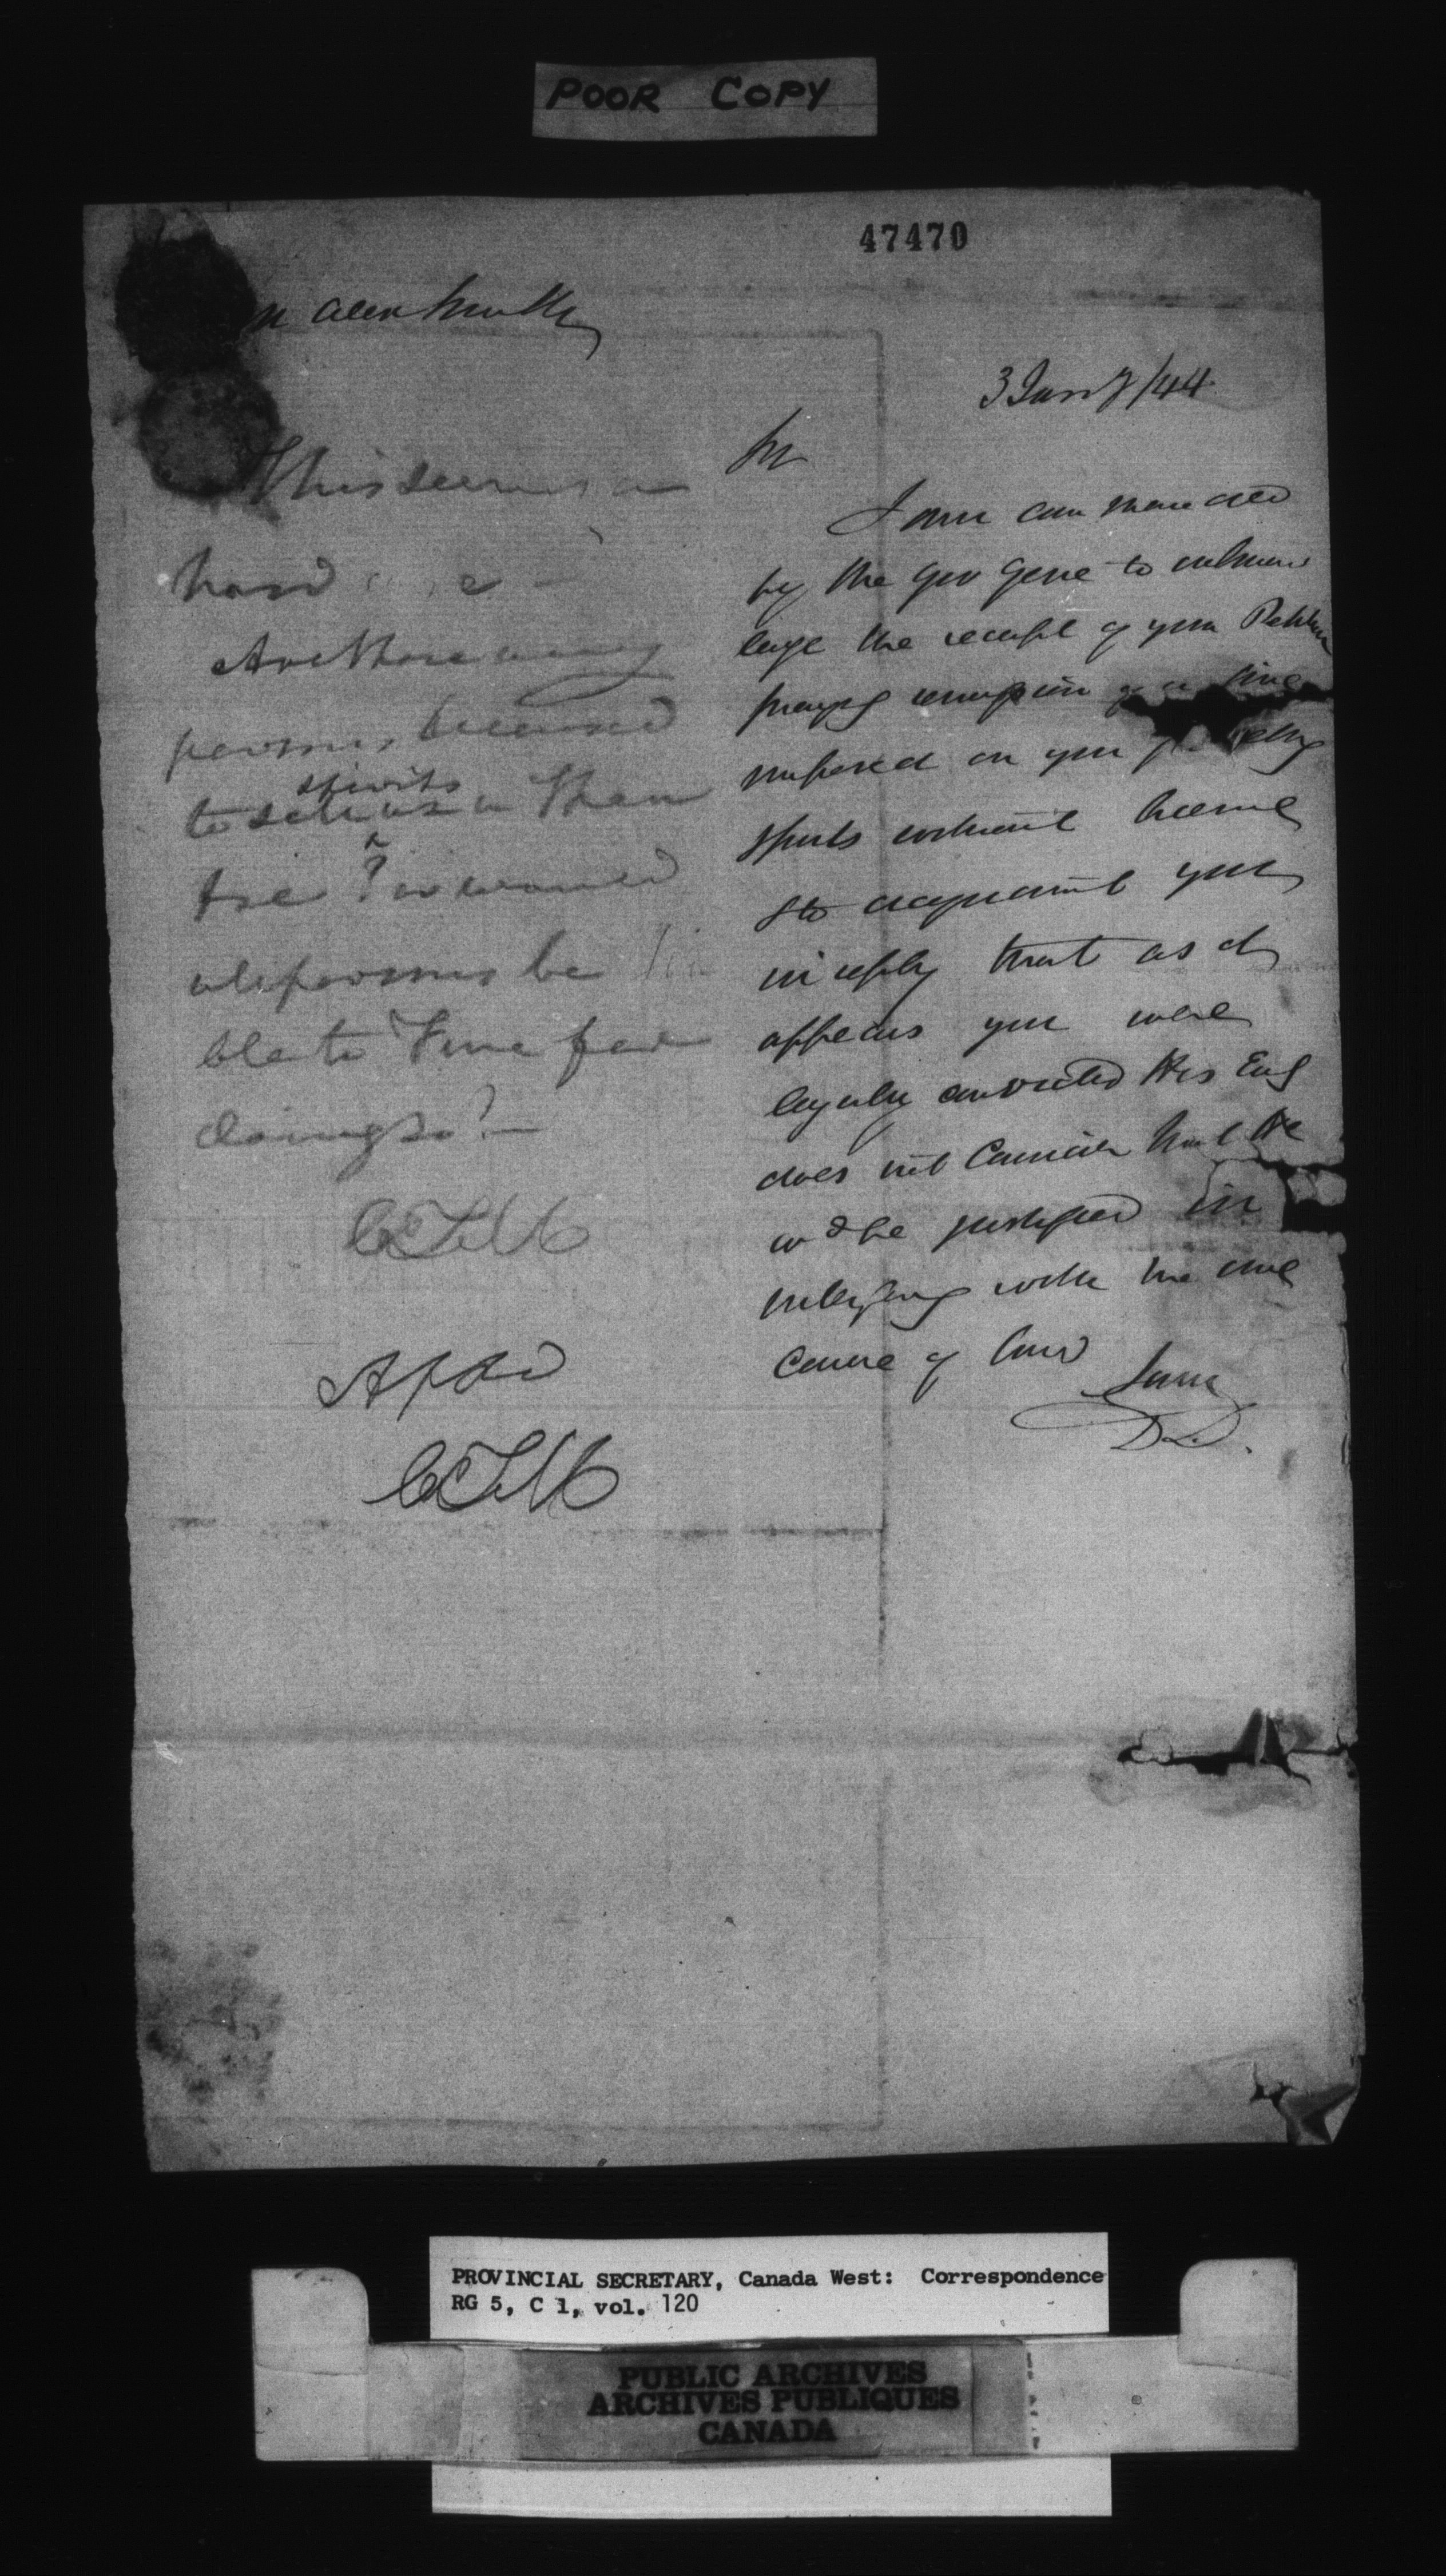 POOR COPY
47470
Alex
3 Jany /44
This seems a
hard
Are there any
persons, licensed
spirits
to sell as a Thea
tre? or would
all persons be lia
ble to Fine for
doing so?
CTM
Appd
CTM
Sir
I am commanded
by the Gov Gene to acknow
lege the receipt of your Petition
praying remission of a fine
imposed on you for selling
spirits without license
& to acquaint you
in reply that as it
appears you were
legally convicted His Exy
does not consider that He
wd be justified in
interfering with the due
course of law
I am
D.D.
PROVINCIAL SECRETARY, Canada West: Correspondence
RG 5, C 1, vol. 120
PUBLIC ARCHIVES
ARCHIVES PUBLIQUES
CANADA